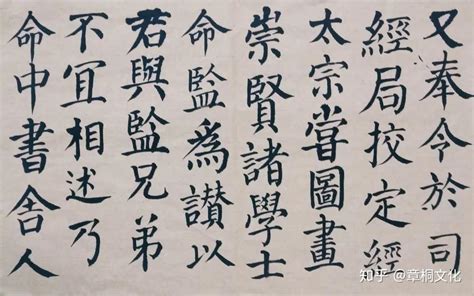 又奉令於司
經局挍定經
太宗嘗圖畫
崇賢諸學士
命監爲讃以
若與監兄弟
不宜相述乃
命中書舍人
知乎 @章桐文化